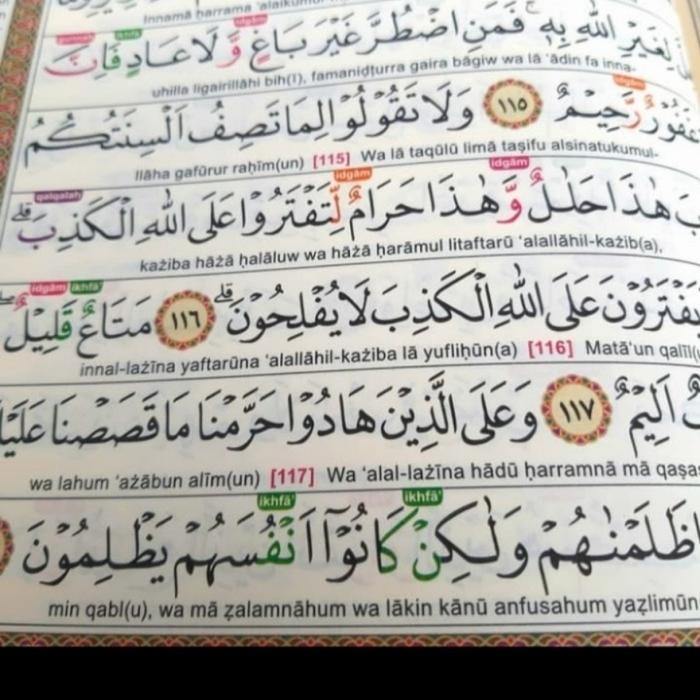 Innamā ḥarrama 'alaikumul
لِغَيْرِ اللّٰهِ بِهٖ ۚ فَمَنِ اضْطُرَّ غَيْرَ بَاغٍ وَّلَا عَادٍ فَاِنَّ
uhilla ligairillāhi bih(ī), famaniḍṭurra gaira bāgiw wa lā 'ādin fa inna-
رَّحِيْمٌ ١١٥ وَلَا تَقُوْلُوْا لِمَا تَصِفُ اَلْسِنَتُكُمُ
llāha gafūrur raḥīm(un) [115] Wa lā taqūlū limā taṣifu alsinatukumul-
هٰذَا حَلٰلٌ وَّهٰذَا حَرَامٌ لِّتَفْتَرُوْا عَلَى اللّٰهِ الْكَذِبَۗ
każiba hāżā ḥalāluw wa hāżā ḥarāmul litaftarū 'alallāhil-każib(a),
يَفْتَرُوْنَ عَلَى اللّٰهِ الْكَذِبَ لَا يُفْلِحُوْنَۗ ١١٦ مَتَاعٌ قَلِيْلٌ
innal-lażīna yaftarūna 'alallāhil-każiba lā yufliḥūn(a) [116] Matā'un qalīl
اَلِيْمٌ ١١٧ وَعَلَى الَّذِيْنَ هَادُوْا حَرَّمْنَا مَا قَصَصْنَا
wa lahum 'ażābun alīm(un) [117] Wa 'alal-lażīna hādū ḥarramnā mā qaṣa
ظَلَمْنٰهُمْ وَلٰكِنْ كَانُوْٓا اَنْفُسَهُمْ يَظْلِمُوْنَ
min qabl(u), wa mā ẓalamnāhum wa lākin kānū anfusahum yaẓlimūn